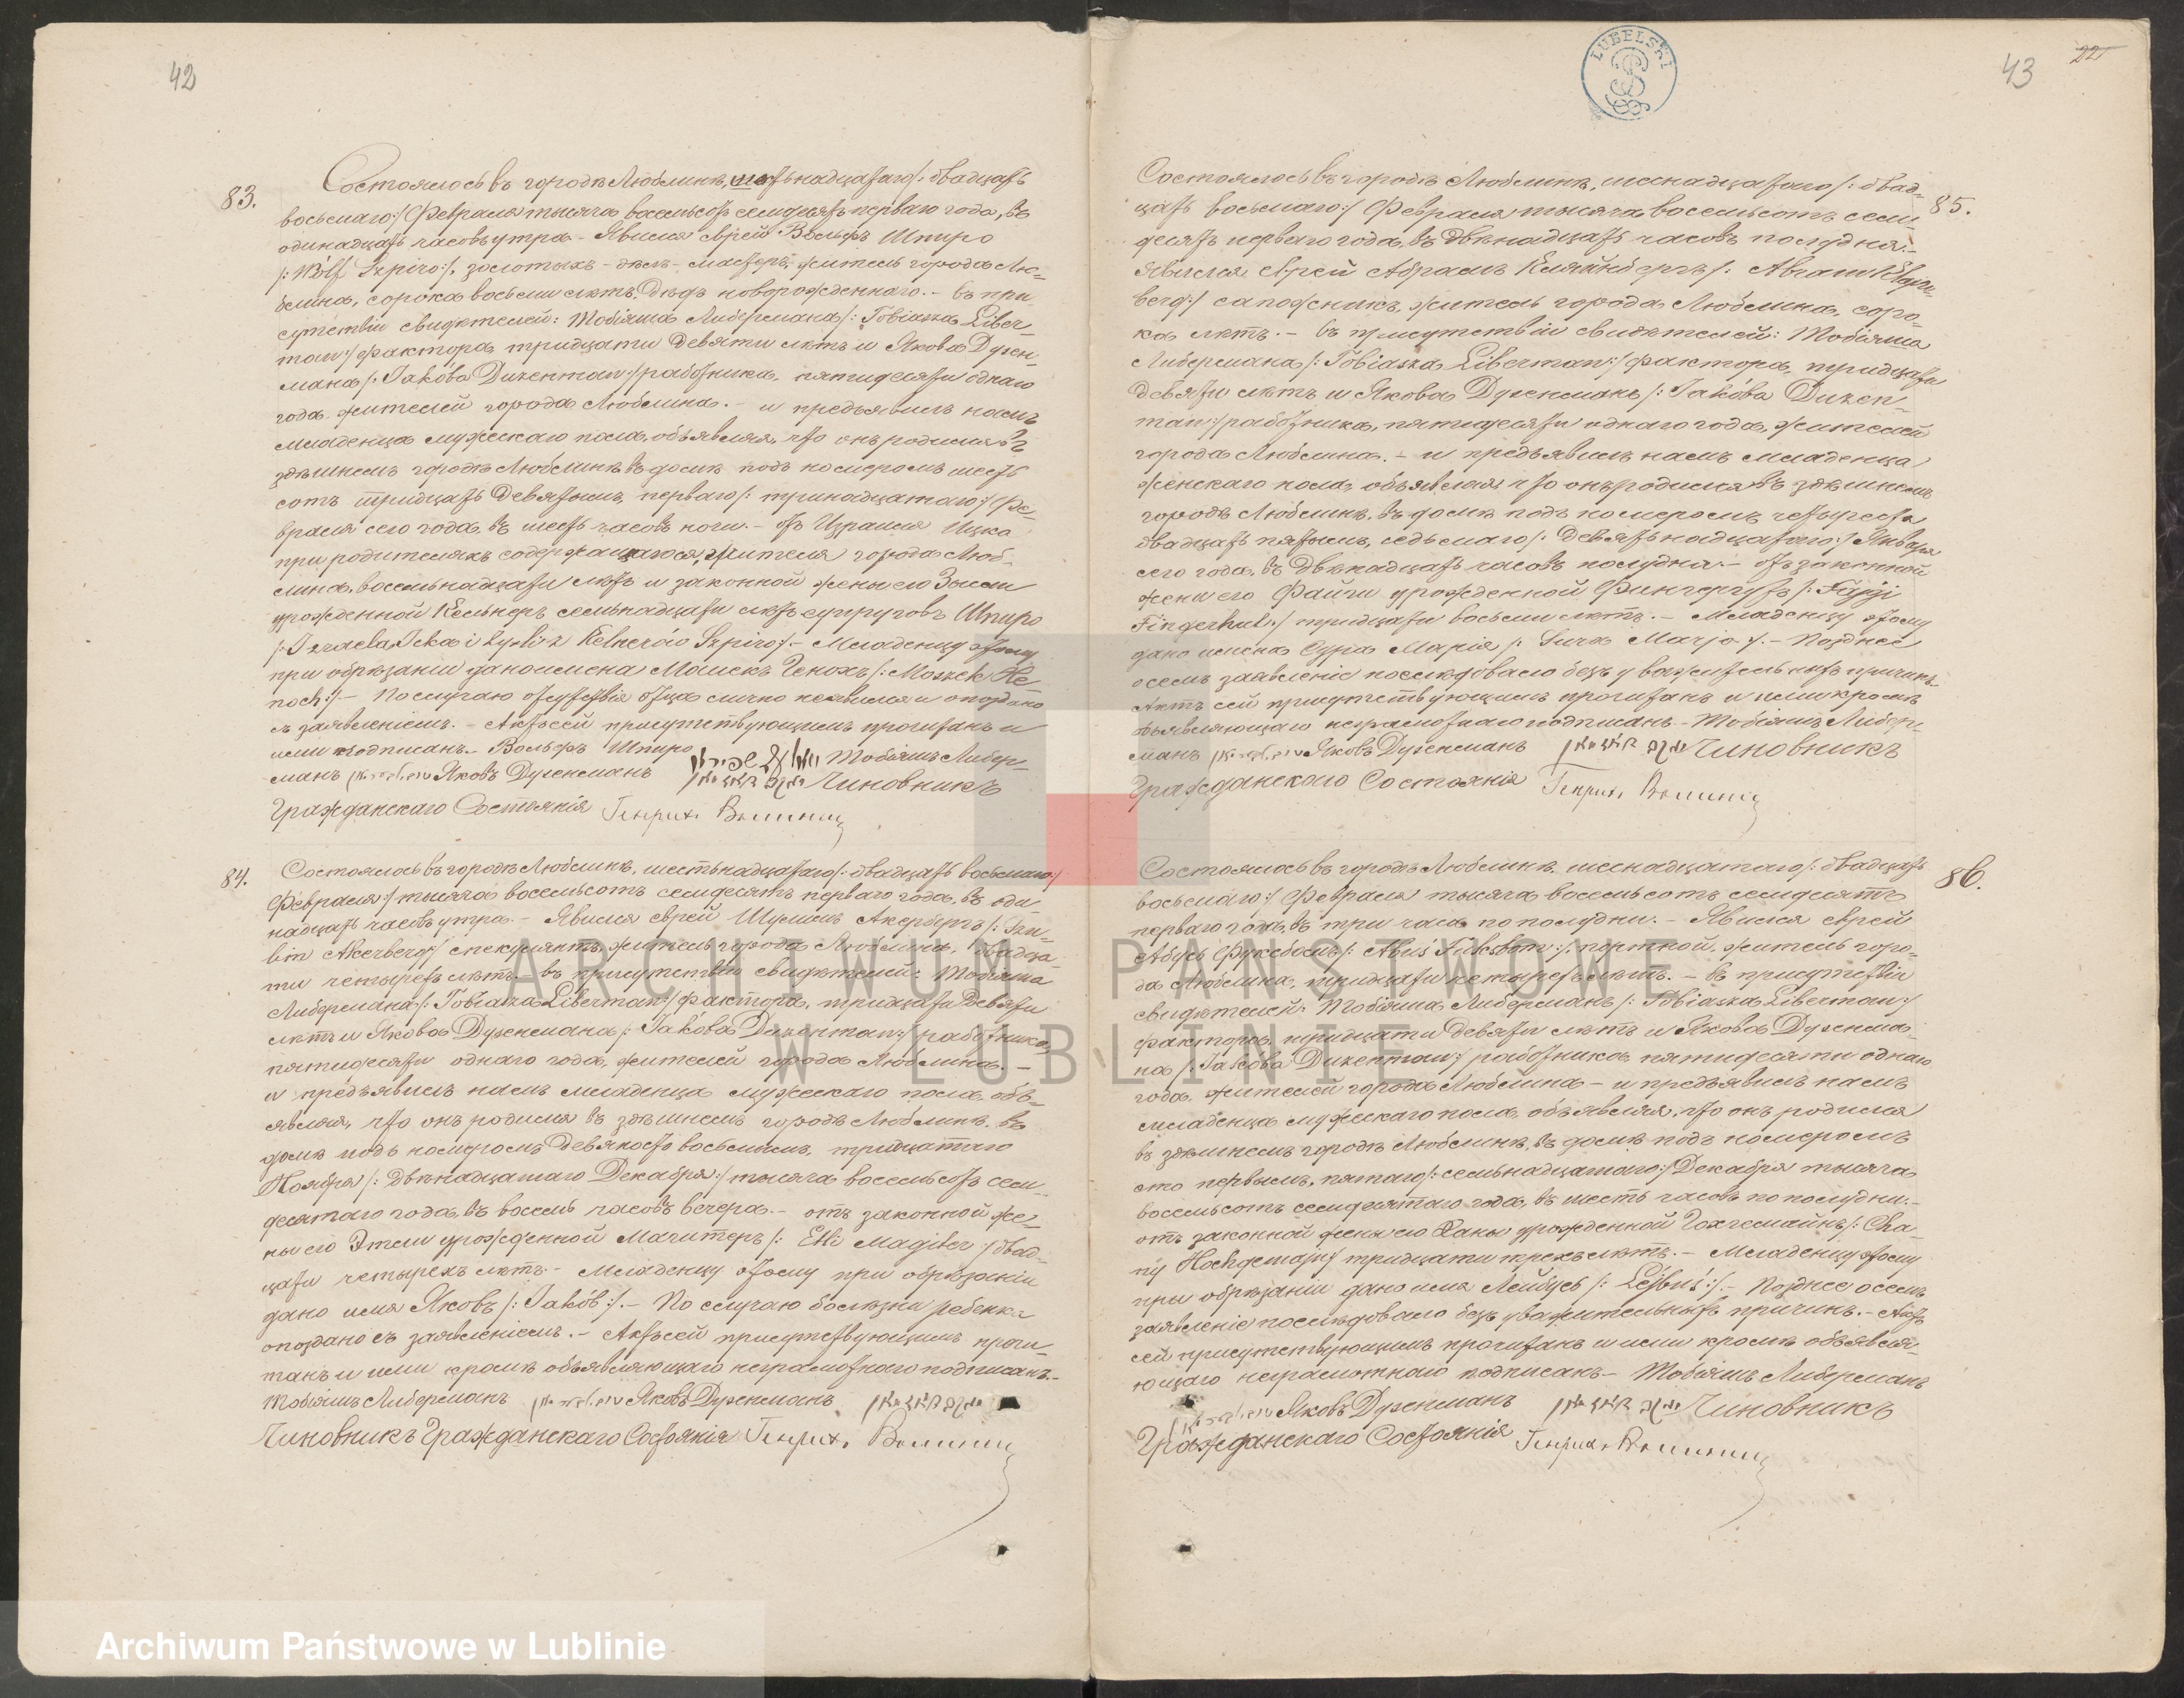 42
83.
Состоялось въ городѣ Люблинѣ, шестьнадцатаго /: двадцать
восьмаго :/ Февраля тысяча восемьсотъ семдесятъ перваго года, въ
одинадцать часовъ утра. - Явился еврей Вольфъ Шпиро
/: Wólf Szpiro :/, золотыхъ - дѣлъ - мастеръ, житель города Лю-
блина, сорока восьми лѣтъ, Дѣдъ новорожденнаго. - въ при
сутствіи свидѣтелей: Тобіяша Либермана /: Tobiasza Liber
man :/ фактора тридцати девяти лѣтъ и Якова Дузен-
мана /: Jakóba Duzenman :/ работника, пятидесяти одного
года жителей города Люблина. - и предъявилъ намъ
младенца мужескаго пола, объявляя, что онъ родился въ
здѣшнемъ городѣ Люблинѣ въ домѣ подъ номеромъ шесть
сотъ тридцать девятымъ, перваго /: тринадцатаго :/ Фе-
враля сего года, въ шесть часовъ ночи. - отъ Израиля Ицка
при родителяхъ содержащагося, жителя города Люб-
лина, восемьнадцати лѣтъ и законной жены его Зысли
урожденной Кельнеръ семьнадцати лѣтъ супруговъ Шпиро
/: Izraela Icka i Zysli z Kelnerów Szpiro :/. - Младенцу этому
при обрѣзаніи дано имена Мошекъ Генохъ /: Moszek He-
noch :/. - По случаю отсутствія отца лично неявился и опоздано
съ заявленіемъ. - Актъ сей присутствующимъ прочитанъ и
ими подписанъ. Вольфъ Шпиро Тобіяшъ Либер-
манъ Яковъ Дузенманъ Чиновникъ
Гражданскаго Состоянія Генрихъ
84.
Состоялось въ городѣ Люблинѣ, шестьнадцатаго /: двадцать восьмаго /
Февраля :/ тысяча восемьсотъ семдесятъ перваго года, въ оди
надцать часовъ утра. - Явился еврей Шулимъ Акербергъ /: Szu-
lim Akerberg :/ спекулянтъ, житель города Люблина, двадца
ти четырехъ лѣтъ. - въ присутствіи свидѣтелей: Тобіяша
Либермана /: Tobiasza Liberman :/ фактора, тридцати девяти
лѣтъ и Якова Дузенмана /: Jakóba Duzenman :/ работника,
пятидесяти одного года, жителей города Люблина. -
и предъявилъ намъ младенца мужескаго пола, объ-
являя, что онъ родился въ здѣшнемъ городѣ Люблинѣ въ
домѣ подъ номеромъ девяносто восьмымъ, тридцатаго
Ноября /: двѣнадцатаго Декабря :/ тысяча восемьсотъ сем-
десятаго года, въ восемь часовъ вечера. - отъ законной же-
ны его Этли урожденной Магитеръ /: Etli Magiter :/ двад-
цати четырехъ лѣтъ. - Младенцу этому при обрѣзаніи
дано имя Яковъ /: Jakób :/. - По случаю болѣзни ребенка
опоздано съ заявленіемъ. - Актъ сей присутствующимъ прочи-
танъ и ими кромѣ объявляющаго неграмотнаго подписанъ. -
Тобіяшъ Либерманъ Яковъ Дузенманъ
Чиновникъ Гражданскаго Состоянія Генрихъ
LUBELSKI
43
22
85.
Состоялось въ городѣ Люблинѣ, шеснадцатаго /: двад-
цать восьмаго :/ Февраля тысяча восемьсотъ семи
десятъ перваго года, въ двѣнадцать часовъ полудня. -
Явился еврей Абрамъ Кляйнбергъ /: Abram Klajn-
berg :/ сапожникъ, житель города Люблина, соро-
ка лѣтъ. - въ присутствіи свидѣтелей: Тобіяша
Либермана /: Tobiasza Liberman :/ фактора, тридцати
девяти лѣтъ и Якова Дузенманъ /: Jakóba Duzen-
man :/ работника, пятидесяти одного года, жителей
города Люблина. - и предъявилъ намъ младенца
женскаго пола, объявляя, что онъ родился въ здѣшнемъ
городѣ Люблинѣ, въ домѣ подъ номеромъ четыреста
двадцать пятымъ, седьмаго /: девятьнадцатаго :/ Января
сего года, въ двѣнадцать часовъ полудня. - отъ законной
жены его Файги урожденной Фингергутъ /: Fajgi
Fingerhut :/ тридцати восьми лѣтъ. - Младенцу этому
дано имена Сура Марія /: Sura Marja :/. - Позднее
о семъ заявленіе послѣдовало безъ уважительныхъ причинъ.
Актъ сей присутствующимъ прочитанъ и ими кромѣ
объявляющаго неграмотнаго подписанъ. - Тобіяшъ Либер-
манъ Яковъ Дузенманъ Чиновникъ
Гражданскаго Состоянія Генрихъ
86.
Состоялось въ городѣ Люблинѣ шеснадцатаго /: двадцать
восьмаго :/ Февраля тысяча восемьсотъ семдесятъ
перваго года, въ три часа по полудни. - Явился еврей
Абусь Фуксбомъ /: Abuś Fuksbom :/ портной, житель горо-
да Люблина, тридцати четырехъ лѣтъ. - въ присутствіи
свидѣтелей: Тобіяша Либерманъ /: Tobiasza Liberman :/
фактора, тридцати девяти лѣтъ и Якова Дузенма-
на /: Jakóba Duzenman :/ работника пятидесяти одного
года, жителей города Люблина - и предъявилъ намъ
младенца мужескаго пола, объявляя, что онъ родился
въ здѣшнемъ городѣ Люблинѣ, въ домѣ подъ номеромъ
сто первымъ, пятаго /: семьнадцатаго :/ Декабря тысяча
восемьсотъ семидесятаго года, въ шесть часовъ по полудни. -
отъ законной жены его Ханы урожденной Гохгемайнъ /: Cha-
ny Hochgemajn :/ тридцати трехъ лѣтъ. - Младенцу этому
при обрѣзаніи дано имя Лейбусь /: Lejbuś :/. - Позднее о семъ
заявленіе послѣдовало безъ уважительныхъ причинъ. - Актъ
сей присутствующимъ прочитанъ и ими кромѣ объявля-
ющаго неграмотнаго подписанъ. - Тобіяшъ Либерманъ
Яковъ Дузенманъ Чиновникъ
Гражданскаго Состоянія Генрихъ
ARCHIWUM PAŃSTWOWE
W LUBLINIE
Archiwum Państwowe w Lublinie